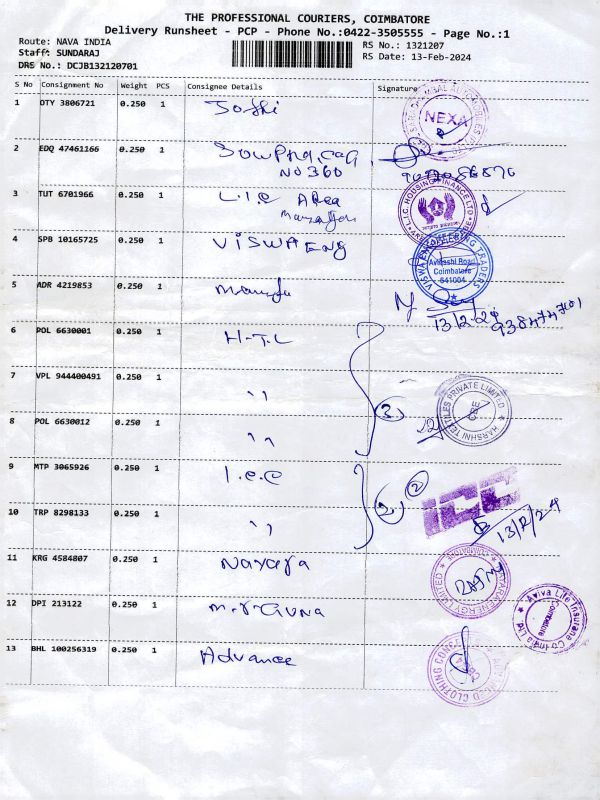 THE PROFESSIONAL COURIERS, COIMBATORE
Delivery Runsheet - PCP - Phone No.:0422-3505555 - Page No.:1
Route: NAVA INDIA
RS No.: 1321207
Staff: SUNDARAJ
RS Date: 13-Feb-2024
DRS No.: DCJB132120701
S No Consignment No Weight PCS Consignee Details Signature
1 DTY 3806721 0.250 1 Joshi
NEXA
2 EDQ 47461166 0.250 1
NO 360
3 TUT 6701966 0.250 1 L.I.C Area
L.I.C. HOUSING FINANCE LTD
4 SPB 10165725 0.250 1 VISWA ENG
VISWA ENGINEERING TRADERS
Avinashi Road
Coimbatore
641004
5 ADR 4219853 0.250 1
13/2/24
6 POL 6630001 0.250 1 H.T.L
7 VPL 944400491 0.250 1 ,,
3
HARSHNI TEXTILES PRIVATE LIMITED
8 POL 6630012 0.250 1 ,,
9 MTP 3065926 0.250 1 I.e.c
2
10 TRP 8298133 0.250 1 ,,
13/2/24
11 KRG 4584807 0.250 1 Nayara
NAYARA ENERGY LIMITED
12 DPI 213122 0.250 1 M.r.Guna
Aviva Life Insurance Co India Ltd
Coimbatore
13 BHL 100256319 0.250 1 Advance